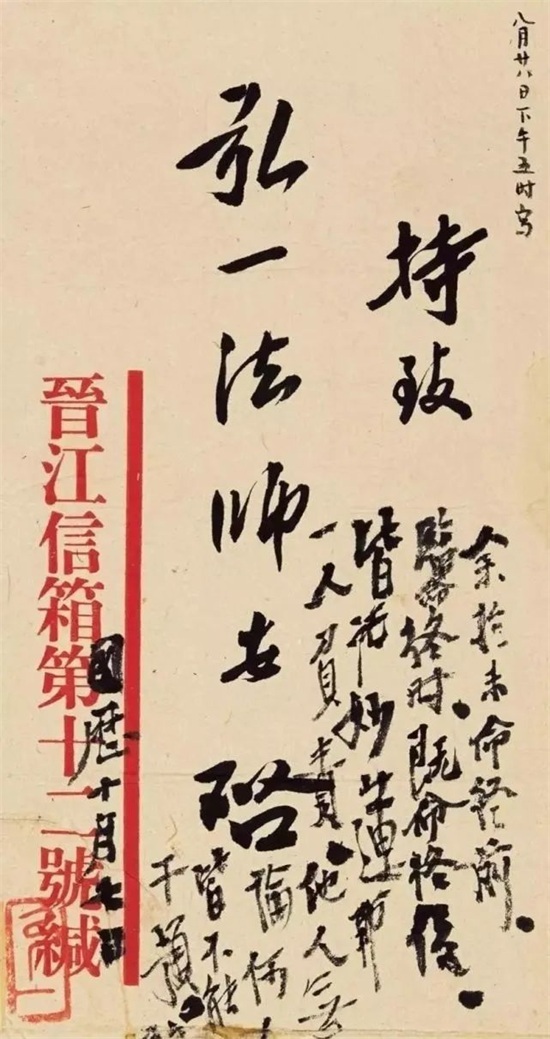 八月廿八日下午五时寫
持致
弘一法师安啓
余於未命終前。
臨命終時。既命終後。
皆托妙蓮师
一人負責。他人無
論何人
皆不能
干預。
國曆十月七日
晉江信箱第十二號緘